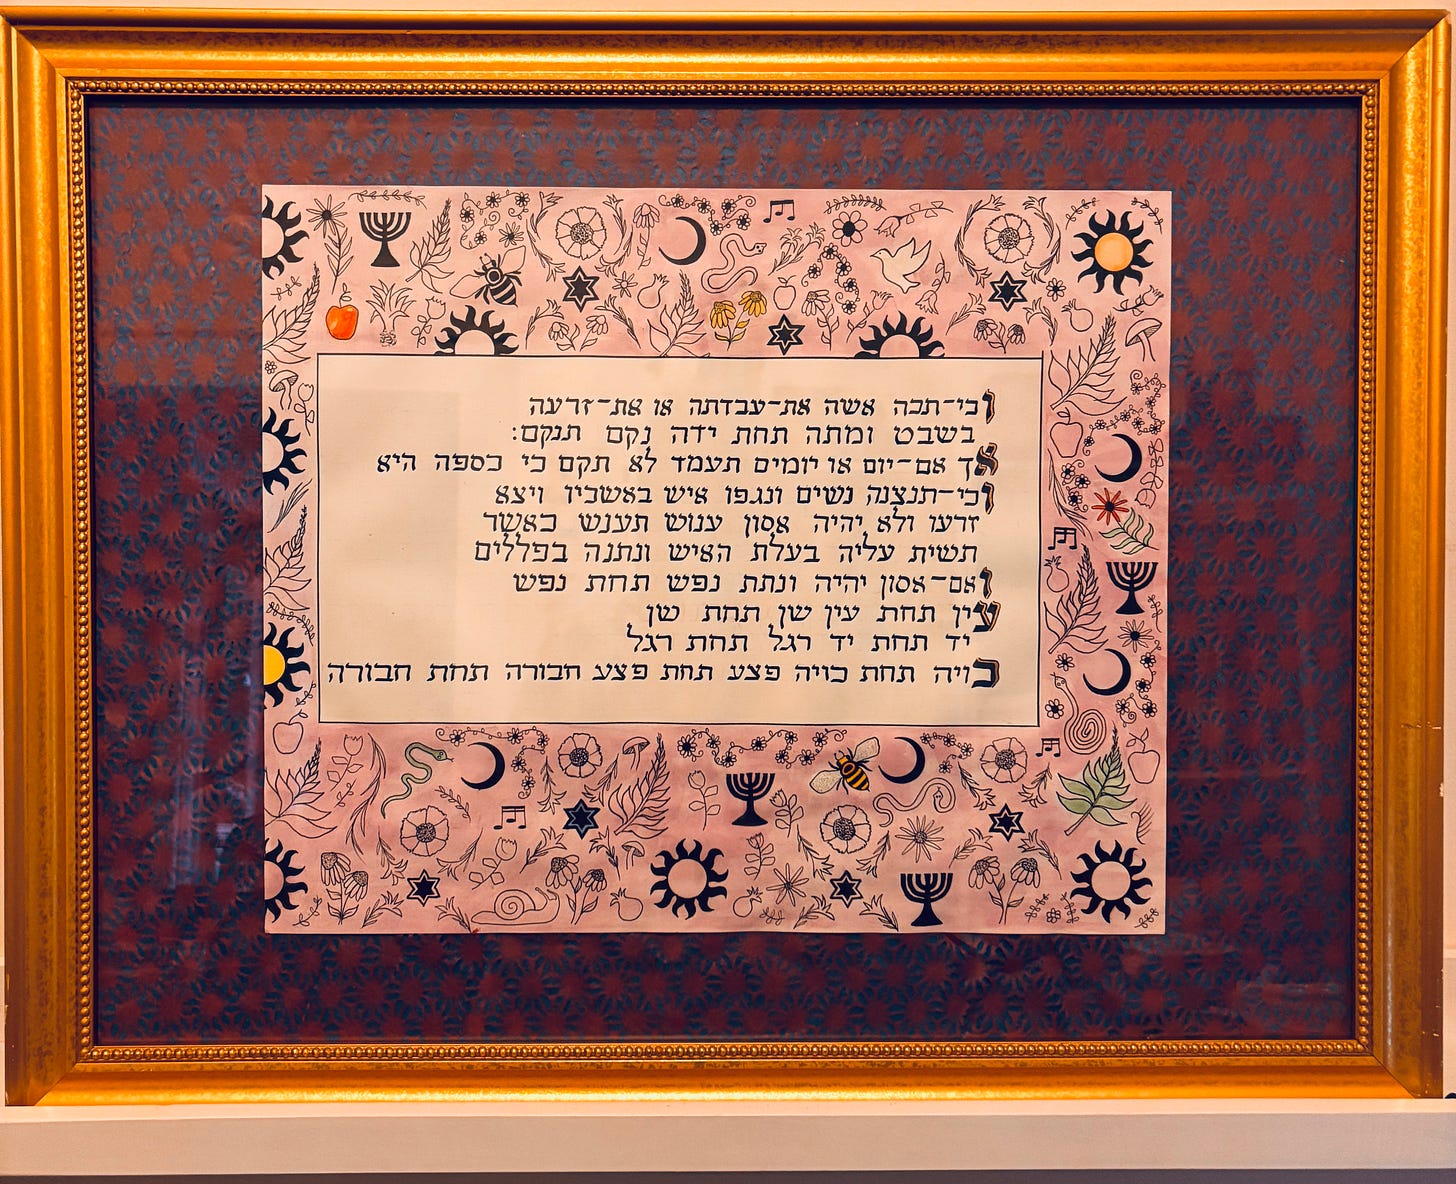 וכי־תכה אשה את־עבדתה או את־זרעה
בשבט ומתה תחת ידה נקם תנקם:
אך אם־יום או יומים תעמד לא תקם כי כספה היא
וכי־תנצנה נשים ונגפו איש באשכיו ויצא
זרעו ולא יהיה אסון ענוש תענש כאשר
תשית עליה בעלת האיש ונתנה בפללים
ואם־אסון יהיה ונתת נפש תחת נפש
עין תחת עין שן תחת שן
יד תחת יד רגל תחת רגל
כויה תחת כויה פצע תחת פצע חבורה תחת חבורה